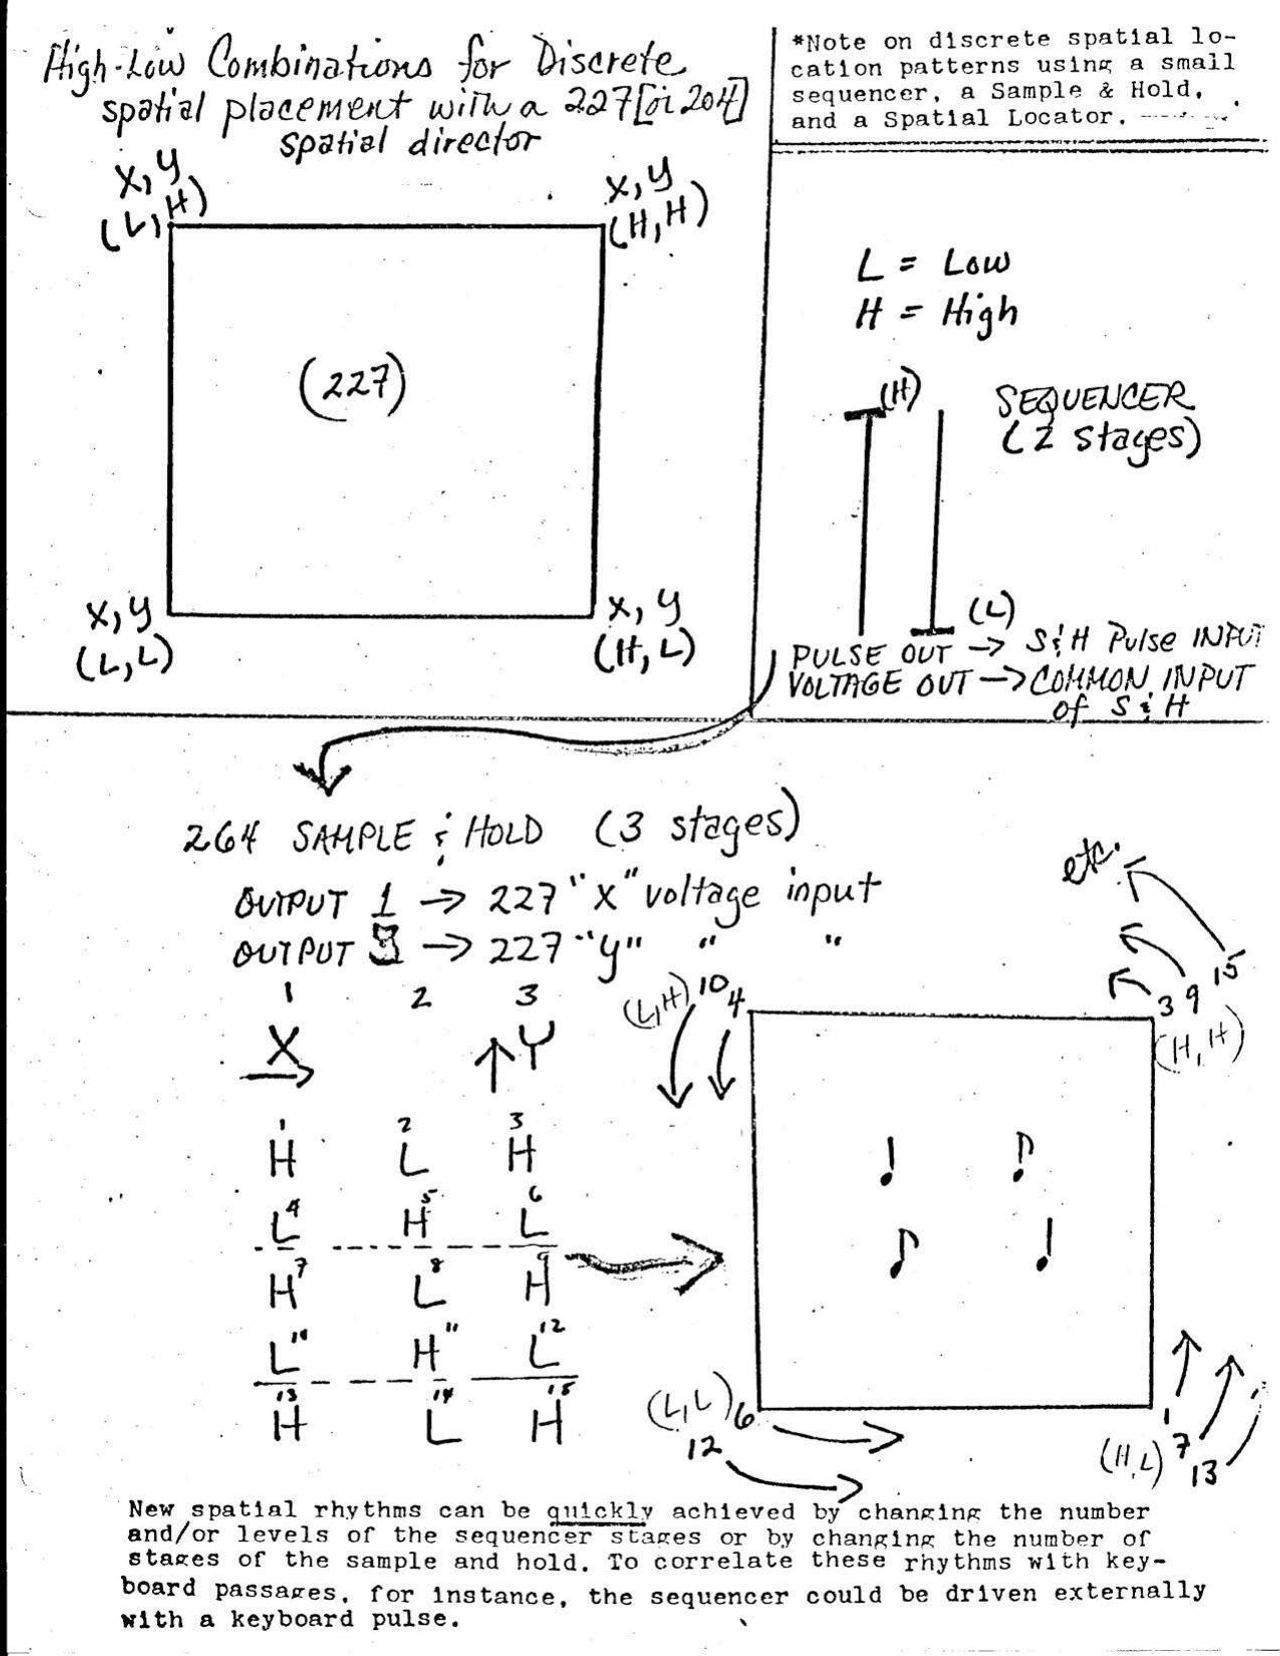 High-Low Combinations for Discrete
spatial placement with a 227 [or 204]
spatial director
*Note on discrete spatial lo-
cation patterns using a small
sequencer, a Sample & Hold,
and a Spatial Locator.
X, Y
(L, H)
X, Y
(H, H)
(227)
X, Y
(L, L)
X, Y
(H, L)
L = Low
H = High
(H)
SEQUENCER
(2 stages)
(L)
PULSE OUT → S&H Pulse INPUT
VOLTAGE OUT → COMMON INPUT
of S & H
264 SAMPLE & HOLD (3 stages)
OUTPUT 1 → 227 "X" voltage input
OUTPUT 3 → 227 "Y" " "
1 2 3
X → ↑ Y
1 2 3
H L H
4 5 6
L H L
7 8 9
H L H
10 11 12
L H L
13 14 15
H L H
etc.
(L, H) 10 4
3 9 15
(H, H)
(L, L) 6
12
1
(H, L) 7
13
New spatial rhythms can be quickly achieved by changing the number
and/or levels of the sequencer stages or by changing the number of
stages of the sample and hold. To correlate these rhythms with key-
board passages, for instance, the sequencer could be driven externally
with a keyboard pulse.